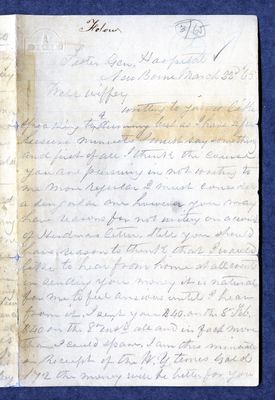 Folow
3/65
Foster Gen. Hospital
New Berne March 22d 65
Dear wiffey
writing to you is like
preaching to a but as I have a few
leisure minutes I must say something
and first of all I think the course
you are pursuing in not writing to
me more regular I must consider
a singular one however you may
have reason for not writing on account
of Hardness either still you should
have reason to think that I would
like to hear from home at all events
in sending you money it is natural
for me to feel anxious until I hear
from it. I sent you $40 on the 8th Feb.
$40 on the 8th inst all and in fact more
than I could spare. I am this minute
in Receipt of the N.Y. times Gold
172 the money will be better for you